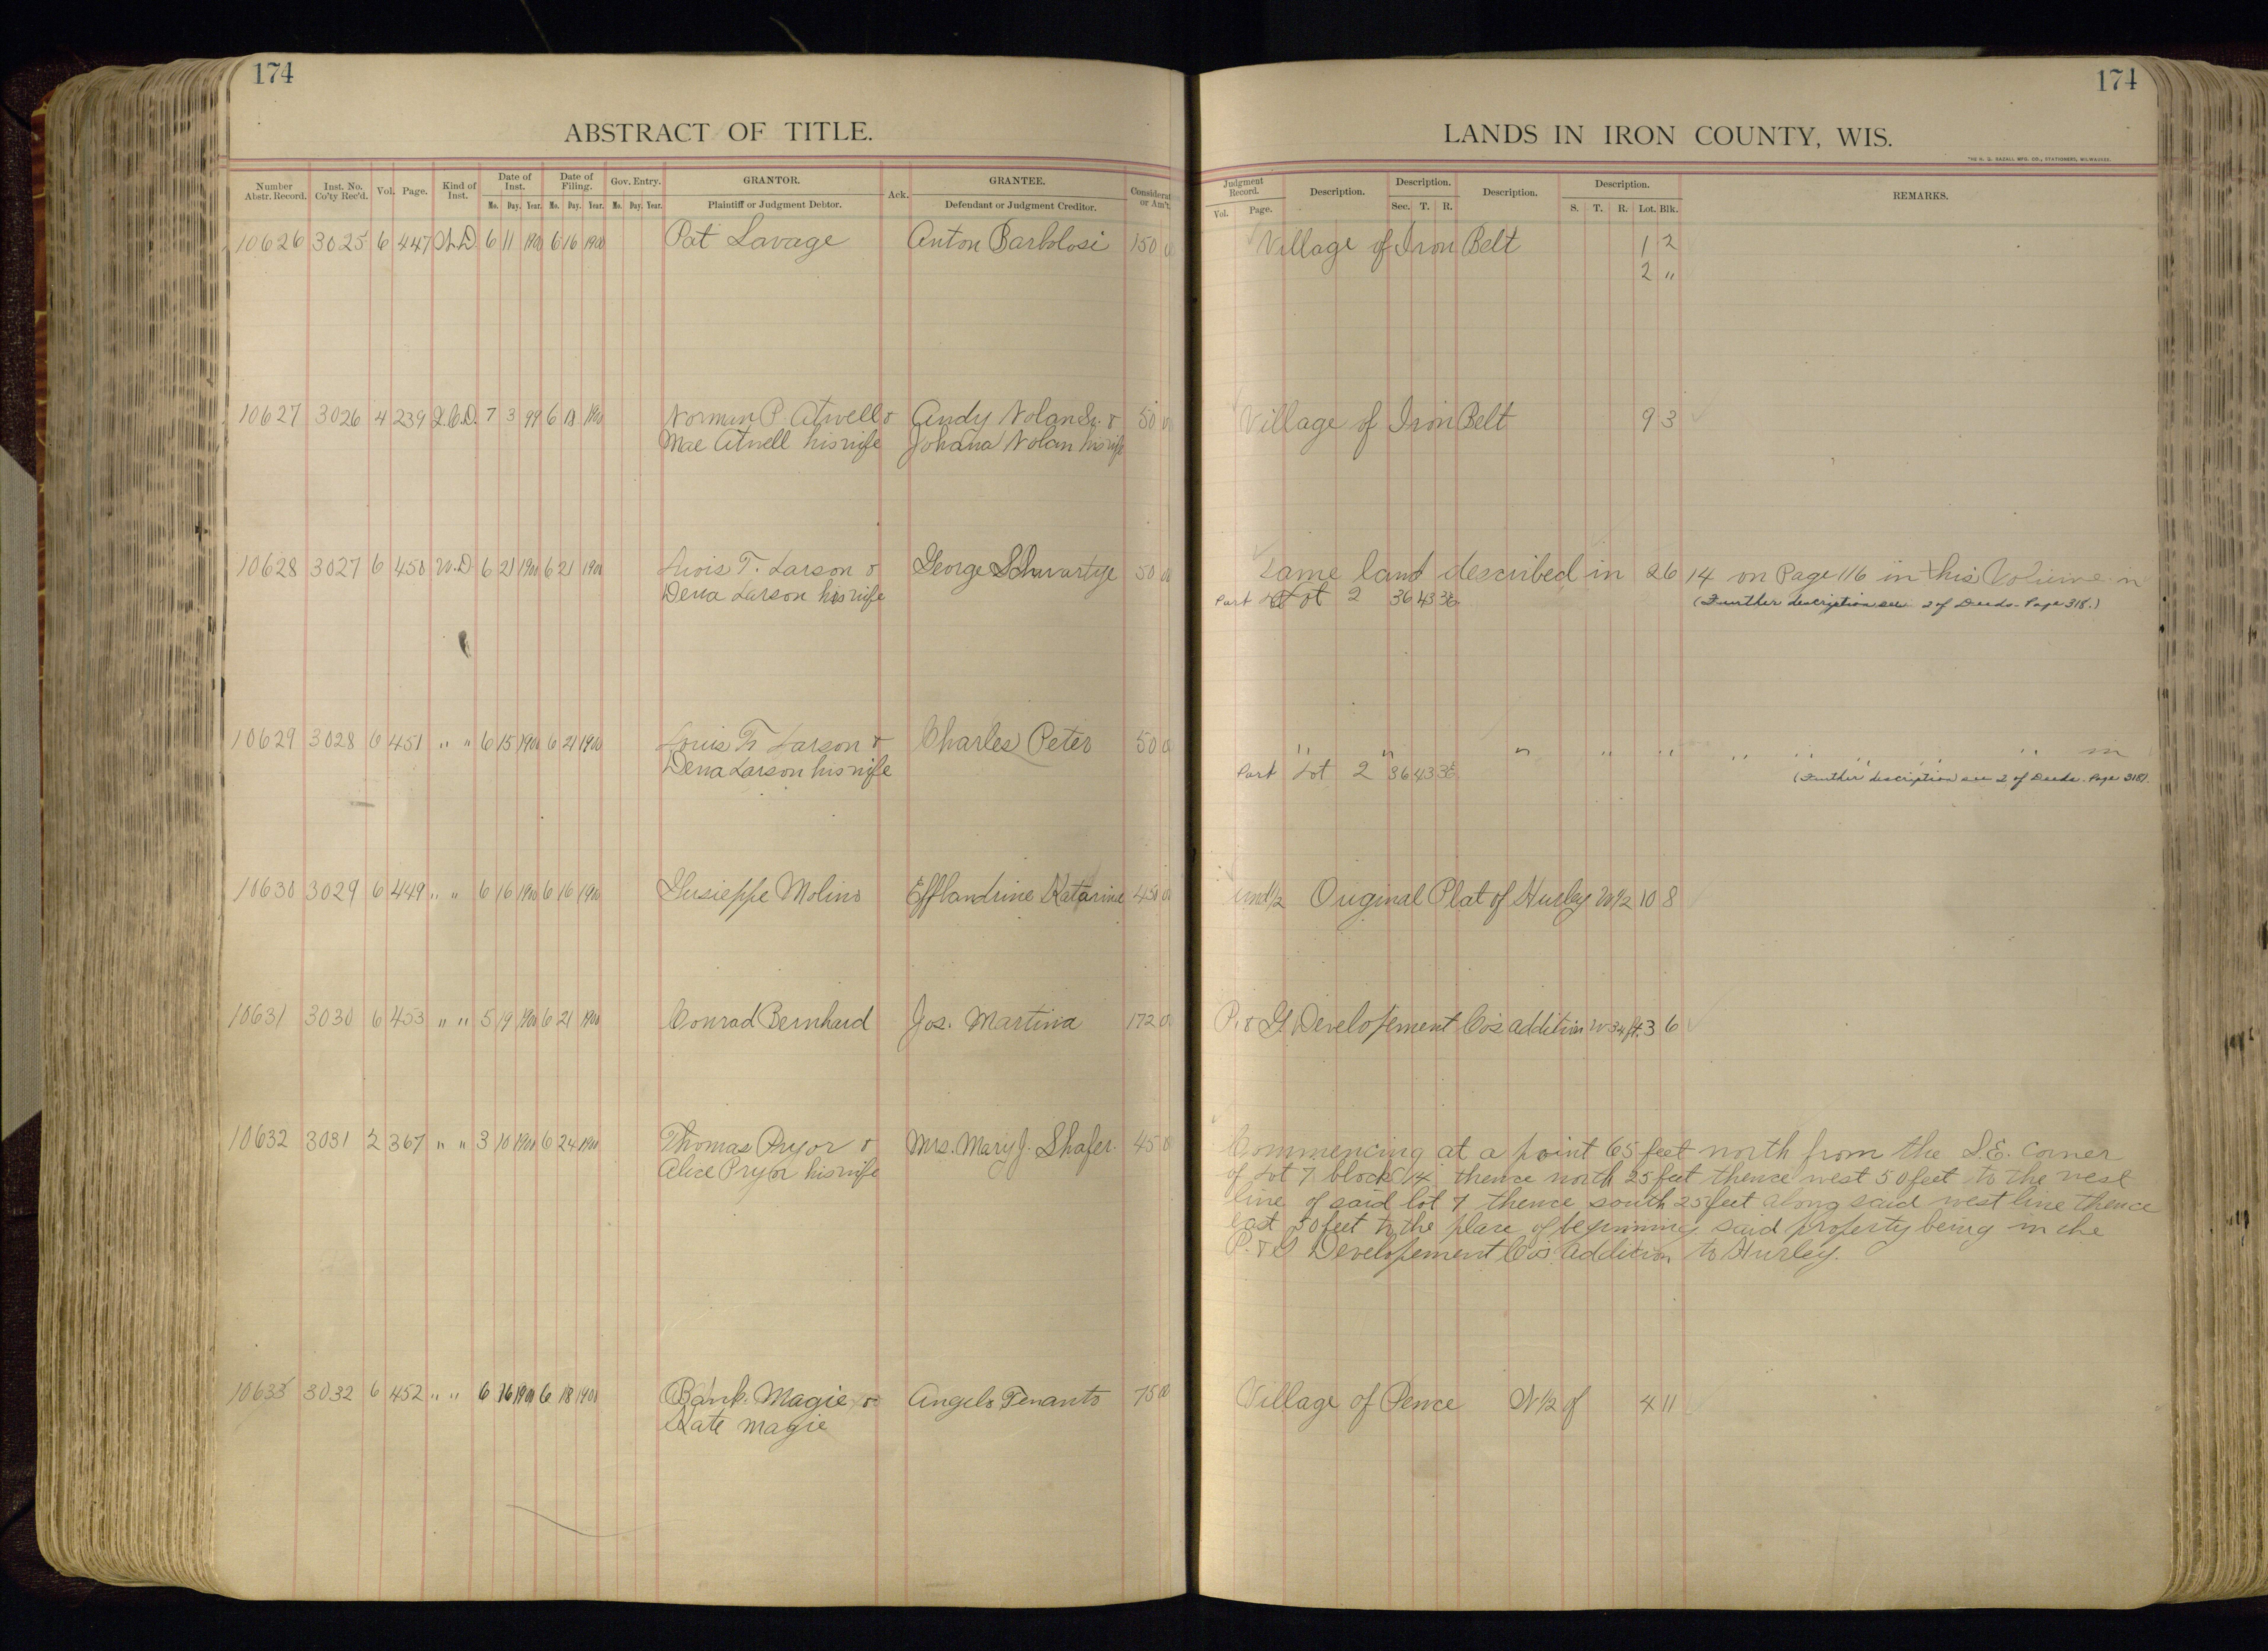 174
ABSTRACT OF TITLE.
Number Abstr. Record. Inst. No. Co'ty Rec'd. Vol. Page. Kind of Inst. Date of Inst. Date of Filing. Gov. Entry. GRANTOR. Ack. GRANTEE. Considerat or Am't.
Mo. Day. Year. Mo. Day. Year. Mo. Day. Year. Plaintiff or Judgment Debtor. Defendant or Judgment Creditor.
10626 3025 6 447 6 11 1900 6 16 1900 Pat Lavage Anton Barbolosi 150
10627 3026 4 239 Q.C.D. 7 3 99 6 18 1900 Norman P. Atwell & Andy Nolan Sr. & 50
Mae Atwell his wife Johana Nolan his wife
10628 3027 6 450 W.D. 6 21 1900 6 21 1900 Luois T. Larson & George Schwartye 50 00
Dena Larson his wife
10629 3028 6 451 " " 6 15 1900 6 21 1900 Louis T. Larson & Charles Peter 50 00
Dena Larson his wife
10630 3029 6 449 " " 6 16 1900 6 16 1900 Gusieppe Molino Efflandrine Katarina 450 00
10631 3030 6 453 " " 5 19 1900 6 21 1900 Conrad Bernhard Jos. Martina 172 00
10632 3031 2 367 " " 3 10 1900 6 24 1900 Thomas Pryor & Mrs. Mary J. Shafer. 45 00
Alice Pryor his wife
10633 3032 6 452 " " 6 16 1900 6 18 1900 Bank. Magie & Angelo Tenanto 75 00
Kate Magie
174
LANDS IN IRON COUNTY, WIS.
THE H. G. RAZALL MFG. CO., STATIONERS, MILWAUKEE.
Judgment Record. Description. Description. Description. Description. REMARKS.
Vol. Page. Sec. T. R. S. T. R. Lot. Blk.
Village of Iron Belt 1 2
2 "
Village of Iron Belt 9 3
Same land described in 2614 on Page 116 in this Volume in
Part Lot 2 36 43 3E (Further description see 2 of Deeds. Page 318.)
" " " " " " " " " " in
Part Lot 2 36 43 3E (Further description see 2 of Deeds. Page 318).
und 1/2 Original Plat of Hurley W1/2 10 8
P. & G. Developement Co's addition W 34 ft. 3 6
Commencing at a point 65 feet north from the S.E. corner
of Lot 7 block 14 thence north 25 feet thence west 50 feet to the west
line of said lot 7 thence south 25 feet along said west line thence
east 50 feet to the place of beginning said property being in the
P. & G Developement Co's addition to Hurley.
Village of Pence N 1/2 of 4 11